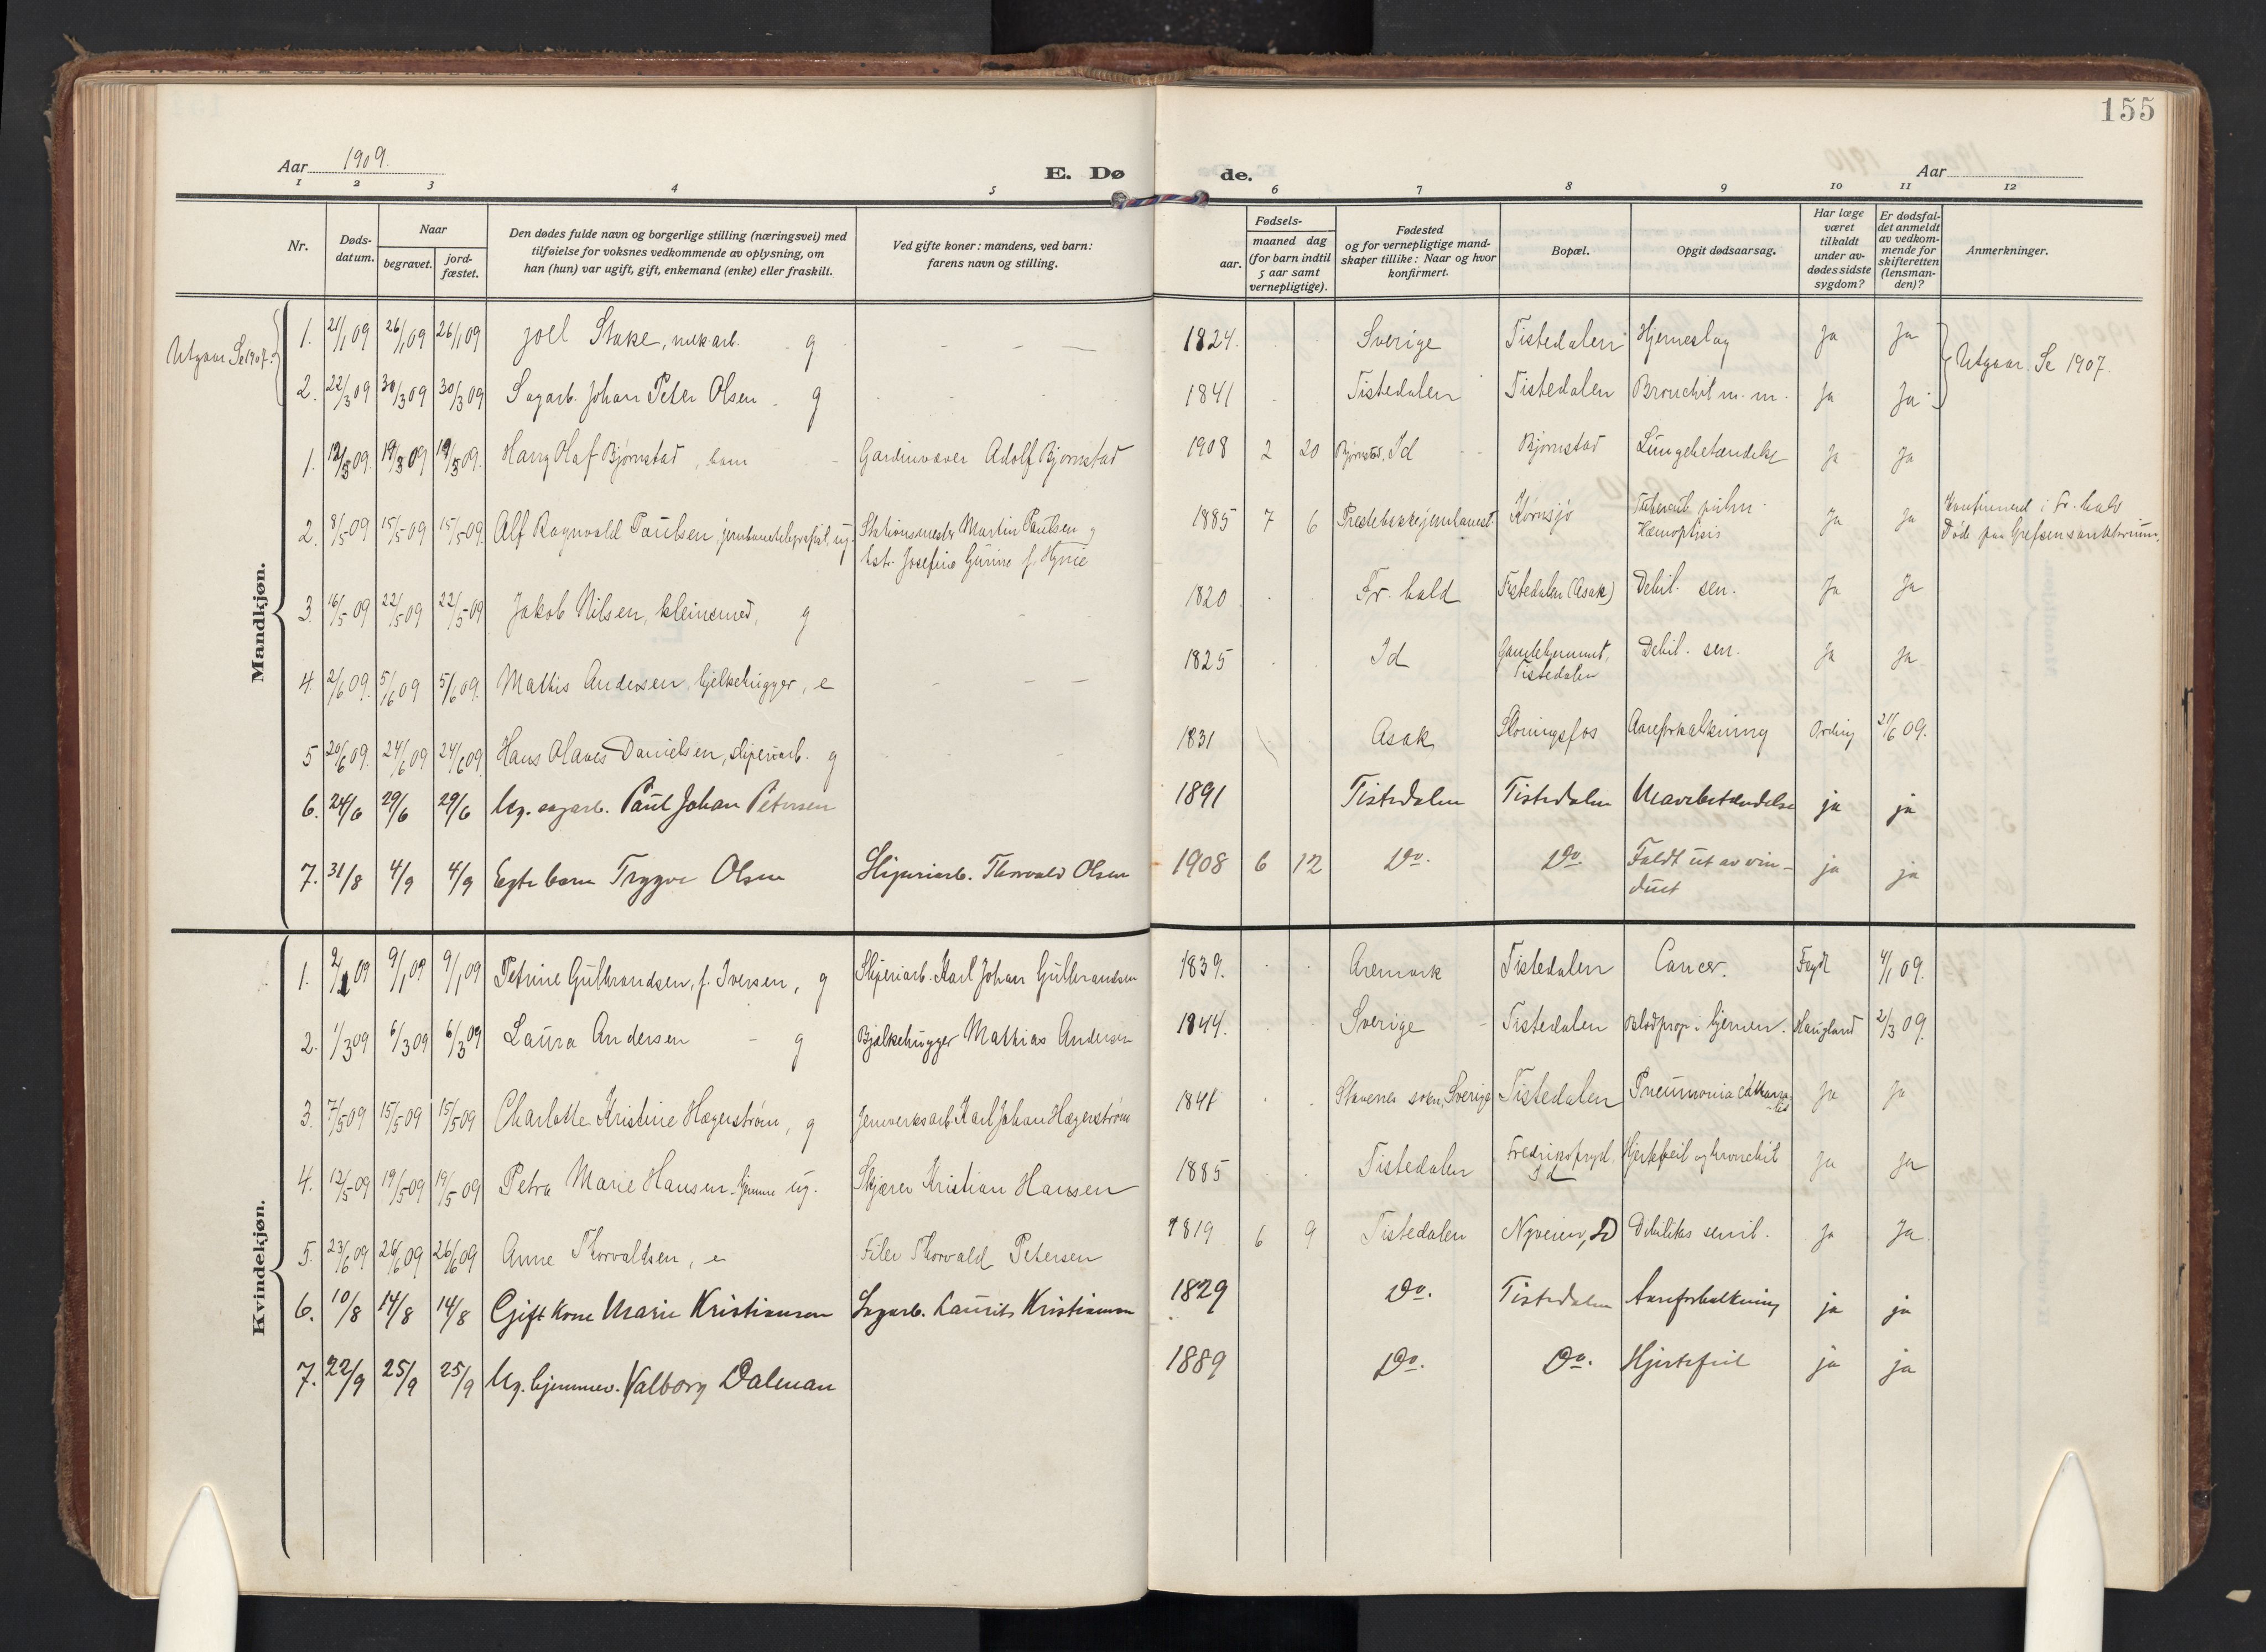 155
Aar 1909.
E. Dø de.
Aar
1 2 3 4 5 6 7 8 9 10 11 12
Nr.
Døds-
datum.
Naar
begravet.
jord-
fæstet.
Den dødes fulde navn og borgerlige stilling (næringsvei) med
tilføielse for voksnes vedkommende av oplysning, om
han (hun) var ugift, gift, enkemand (enke) eller fraskilt.
Ved gifte koner: mandens, ved barn:
farens navn og stilling.
Fødsels-
aar.
maaned dag
(for barn indtil
5 aar samt
vernepligtige).
Fødested
og for vernepligtige mand-
skaper tillike: Naar og hvor
konfirmert.
Bopæl.
Opgit dødsaarsag.
Har læge
været
tilkaldt
under av-
dødes sidste
sygdom?
Er dødsfal-
det anmeldt
av vedkom-
mende for
skifteretten
(lensman-
den)?
Anmerkninger.
Mandkjøn.
Utgaar Se 1907.
1. 21/1 09 26/1 09 26/1 09 Joel Stake, mek.arb. g - - - 1824. Sverige Tistedalen Hjerneslag Ja Ja
Utgaar. Se 1907.
2. 22/3 09 30/3 09 30/3 09 Sagarb. Johan Peter Olsen g 1841 Tistedalen Tistedalen Bronchit m. m. Ja Ja
1. 12/5 09. 19/5 09 19/5 09. Harry Olaf Bjørnstad, barn Gardinvæver Adolf Bjørnstad 1908 2 20 Bjørnstad, Id Bjørnstad Lungebetændelse Ja Ja
2. 8/5 09 15/5 09 15/5 09. Alf Ragnvald Paulsen, jernbanetelegrafist, ug. Stationsmester Martin Paulsen og
hst. Josefine Gurine f. Hynie
1885 7 6 Prestebakke jernbanest. Kornsjø Tuberculi pulm.
Hæmoptisis
Ja Ja Konfirmert i Fr.hald
Døde paa Grefsen sanatorium.
3. 16/5 09 22/5 09 22/5 09 Jakob Nilsen, kleinsmed, g - 1820 Fr.hald Tistedalen (Asak) Debil. sen. Ja Ja
4. 2/6 09. 5/6 09 5/6 09. Mathis Andersen, bjelkehugger, e - - - 1825 Id Gamlehjemmet,
Tistedalen
Debil. sen. Ja Ja
5 20/6 09. 24/6 09 24/6 09. Hans Olaves Danielsen, sliperiarb. g 1831 Asak Skoningsfos Aareforkalkning Ording 21/6 09.
6. 24/6 29/6 29/6 Ug. sagarb. Paul Johan Petersen 1891 Tistedalen Tistedalen Mavebetændelse ja ja
7. 31/8 4/9 4/9 Egte barn Trygve Olsen Sliperiarb. Thorvald Olsen 1908 6 12 Do. Do. Faldt ut av vin-
duet
ja ja
Kvindekjøn.
1. 2/1 09 9/1 09 9/1 09 Petrine Gulbrandsen, f. Iversen, g Sliperiarb. Karl Johan Gulbrandsen 1839. Aremark Tistedalen Cancer. 4/1 09.
2. 1/3 09 6/3 09 6/3 09 Laura Andersen - g Bjælkehugger Mathias Andersen 1844. Sverige Tistedalen Blodprop i hjernen. Haugland 2/3 09.
3. 7/5 09 15/5 09 15/5 09 Charlotte Kristine Hægerstrøm, g Jernverksarb. Karl Johan Hægerstrøm 1841 Sverige Tistedalen Pneumonia Ja Ja
4. 12/5 09 19/5 09 19/5 09 Petra Marie Hansen - hjemme ug. Skjærer Kristian Hansen 1885 Tistedalen Fredriksfryd,
Id
Hjertefeil og bronchit Ja Ja
5. 23/6 09 26/6 09 26/6 09 Anne Thorvaldsen, e Filer Thorvald Petersen 1819 6 9 Tistedalen Nyveien, Id Debilitas senil. Ja Ja
6. 10/8 14/8 14/8 Gift kone Marie Kristiansen Sagarb. Laurits Kristiansen 1829 Do. Tistedalen Aareforkalkning ja ja
7. 22/9 25/9 25/9 Ug. hjemmev. Valborg Dalman 1889 Do. Do. Hjertefeil ja ja